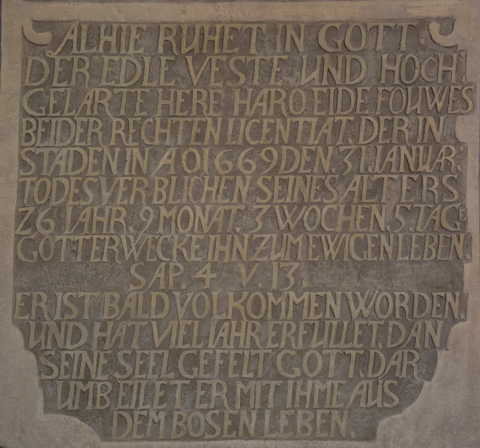 ALHIE RUHET IN GOTT.
DER EDLE VESTE UND HOCH
GELARTE HERE HARO EIDE FOUWES
BEIDER RECHTEN LICENTIAT. DER IN
STADEN IN AO 1669 DEN. 31. IANUAR:
TODES VERBLICHEN SEINES ALTERS
26 IAHR. 9 MONAT. 3 WOCHEN. 5. TAGE
GOTT ERWECKE IHN ZUM EWIGEN LEBEN.
SAP. 4 V. 13.
ER IST BALD VOLKOMMEN WORDEN.
UND HAT VIEL IAHR ERFULLET. DAN
SEINE SEEL GEFELT GOTT. DAR
UMB EILET ER MIT IHME AUS
DEM BOSEN LEBEN.